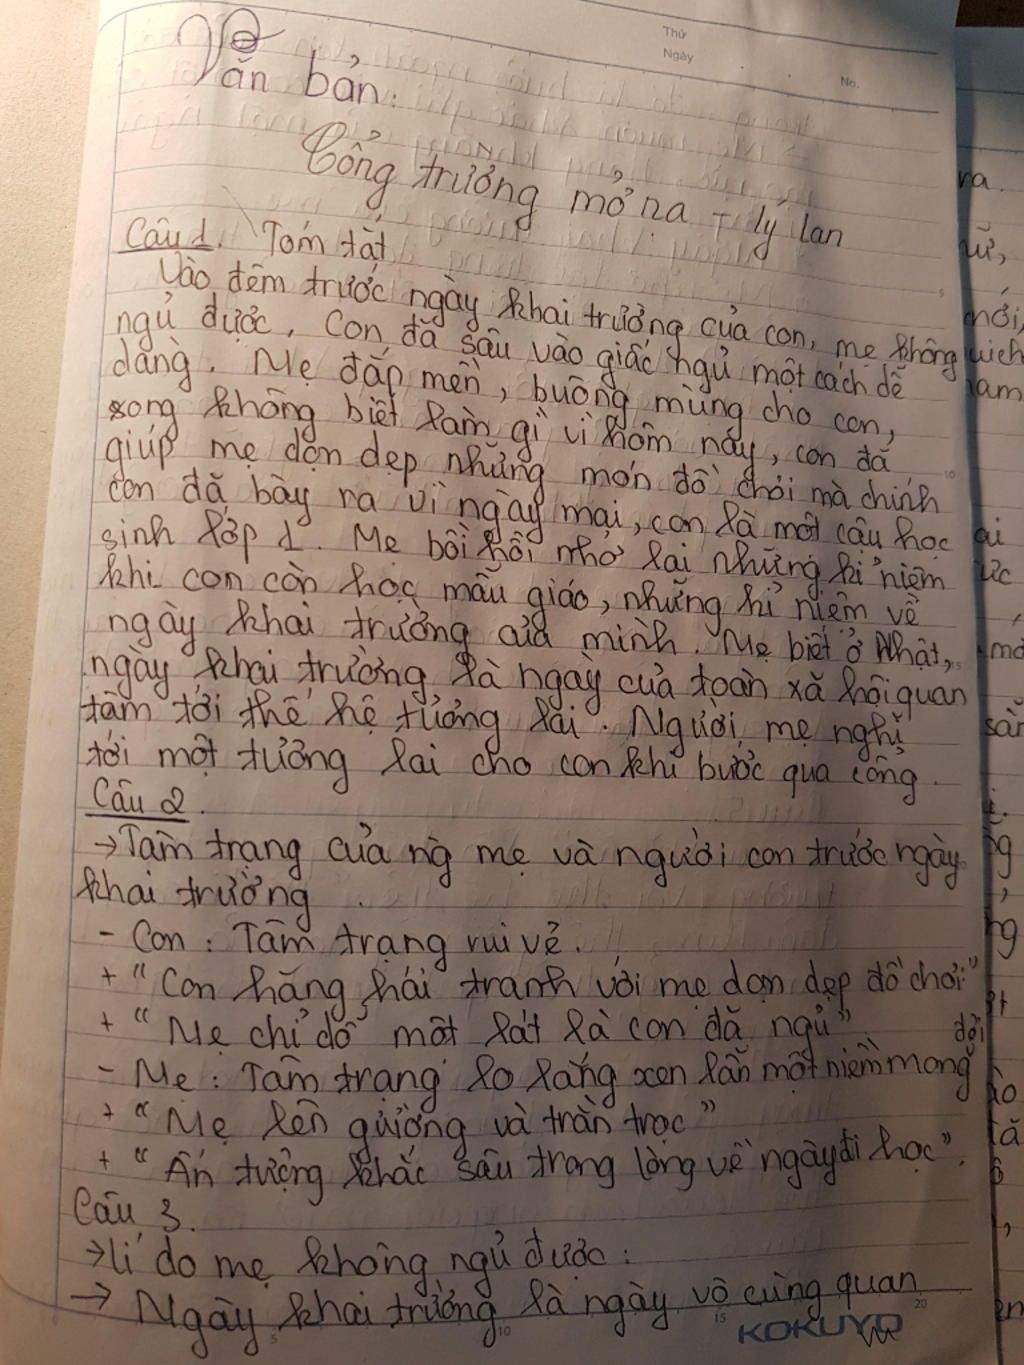 Thứ
Ngày
No.
Văn bản:
Cổng trường mở ra - lý lan
Câu 1. Tóm tắt
Vào đêm trước ngày khai trường của con, mẹ không
ngủ được. Con đã sâu vào giấc ngủ một cách dễ
dàng. Mẹ đắp mền, buông mùng cho con,
song không biết làm gì vì hôm nay, con đã
giúp mẹ dọn dẹp những món đồ chơi mà chính
con đã bày ra vì ngày mai, con là một cậu học
sinh lớp 1. Mẹ bồi hồi nhớ lại những kỉ niệm
khi con còn học mẫu giáo, những kỉ niệm về
ngày khai trường của mình. Mẹ biết ở Nhật,
ngày khai trường là ngày của toàn xã hội quan
tâm tới thế hệ tương lai. Người mẹ nghĩ
tới một tương lai cho con khi bước qua cổng.
Câu 2.
→ Tâm trạng của ng mẹ và người con trước ngày
khai trường.
- Con: Tâm trạng vui vẻ.
+ "Con hăng hái tranh với mẹ dọn dẹp đồ chơi"
+ "Mẹ chỉ dỗ một lát là con đã ngủ"
- Mẹ: Tâm trạng lo lắng xen lẫn một niềm mong đợi
+ "Mẹ lên giường và trằn trọc"
+ "Ấn tượng khắc sâu trong lòng về ngày đi học".
Câu 3.
→ lí do mẹ không ngủ được:
→ Ngày khai trường là ngày vô cùng quan
5 10 15 20
KOKUYO